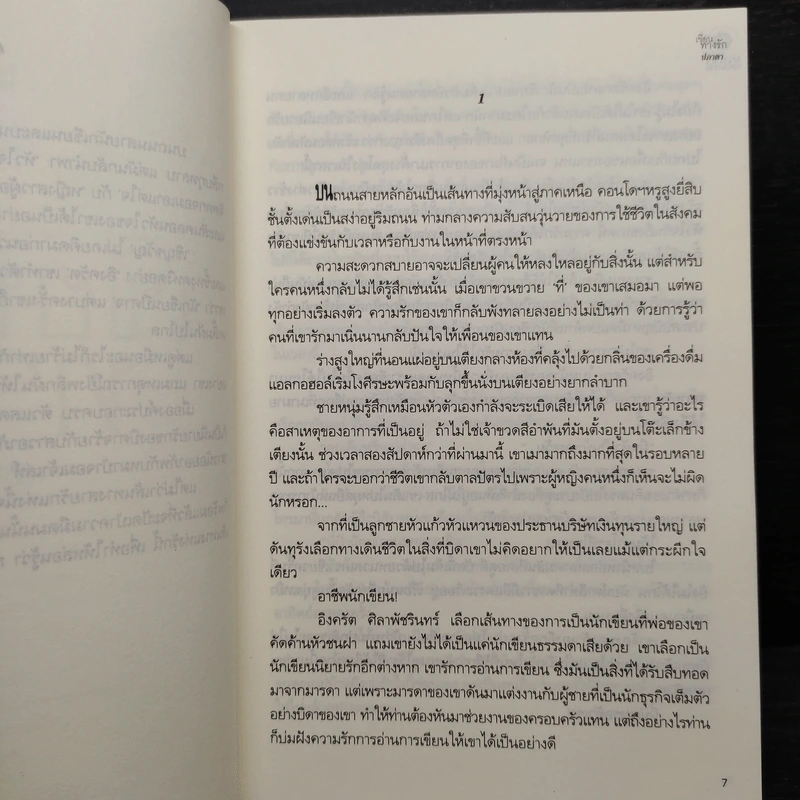 เขียน
ทางรัก
ปภาดา
1
บนถนนสายหลักอันเป็นเส้นทางที่มุ่งหน้าสู่ภาคเหนือ คอนโดฯหรูสูงยี่สิบ
ชั้นตั้งเด่นเป็นสง่าอยู่ริมถนน ท่ามกลางความสับสนวุ่นวายของการใช้ชีวิตในสังคม
ที่ต้องแข่งขันกับเวลาหรือกับงานในหน้าที่ตรงหน้า
ความสะดวกสบายอาจจะเปลี่ยนผู้คนให้หลงใหลอยู่กับสิ่งนั้น แต่สำหรับ
ใครคนหนึ่งกลับไม่ได้รู้สึกเช่นนั้น เมื่อเขาขวนขวาย 'ที่' ของเขาเสมอมา แต่พอ
ทุกอย่างเริ่มลงตัว ความรักของเขาก็กลับพังทลายลงอย่างไม่เป็นท่า ด้วยการรู้ว่า
คนที่เขารักมาเนิ่นนานกลับปันใจให้เพื่อนของเขาแทน
ร่างสูงใหญ่ที่นอนแผ่อยู่บนเตียงกลางห้องที่คลุ้งไปด้วยกลิ่นของเครื่องดื่ม
แอลกอฮอล์เริ่มโงศีรษะพร้อมกับลุกขึ้นนั่งบนเตียงอย่างยากลำบาก
ชายหนุ่มรู้สึกเหมือนหัวตัวเองกำลังจะระเบิดเสียให้ได้ และเขารู้ว่าอะไร
คือสาเหตุของอาการที่เป็นอยู่ ถ้าไม่ใช่เจ้าขวดสีอำพันที่มันตั้งอยู่บนโต๊ะเล็กข้าง
เตียงนั้น ช่วงเวลาสองสัปดาห์กว่าที่ผ่านมานี้ เขาเมามากถึงมากที่สุดในรอบหลาย
ปี และถ้าใครจะบอกว่าชีวิตเขากลับตาลปัตรไปเพราะผู้หญิงคนหนึ่งก็เห็นจะไม่ผิด
นักหรอก...
จากที่เป็นลูกชายหัวแก้วหัวแหวนของประธานบริษัทเงินทุนรายใหญ่ แต่
ดันทุรังเลือกทางเดินชีวิตในสิ่งที่บิดาเขาไม่คิดอยากให้เป็นเลยแม้แต่กระผีกใจ
เดียว
อาชีพนักเขียน!
อิงครัต ศิลาพัชรินทร์ เลือกเส้นทางของการเป็นนักเขียนที่พ่อของเขา
คัดค้านหัวชนฝา แถมเขายังไม่ได้เป็นแค่นักเขียนธรรมดาเสียด้วย เขาเลือกเป็น
นักเขียนนิยายรักอีกต่างหาก เขารักการอ่านการเขียน ซึ่งมันเป็นสิ่งที่ได้รับสืบทอด
มาจากมารดา แต่เพราะมารดาของเขาดันมาแต่งงานกับผู้ชายที่เป็นนักธุรกิจเต็มตัว
อย่างบิดาของเขา ทำให้ท่านต้องหันมาช่วยงานของครอบครัวแทน แต่ถึงอย่างไรท่าน
ก็บ่มฝังความรักการอ่านการเขียนให้เขาได้เป็นอย่างดี
7